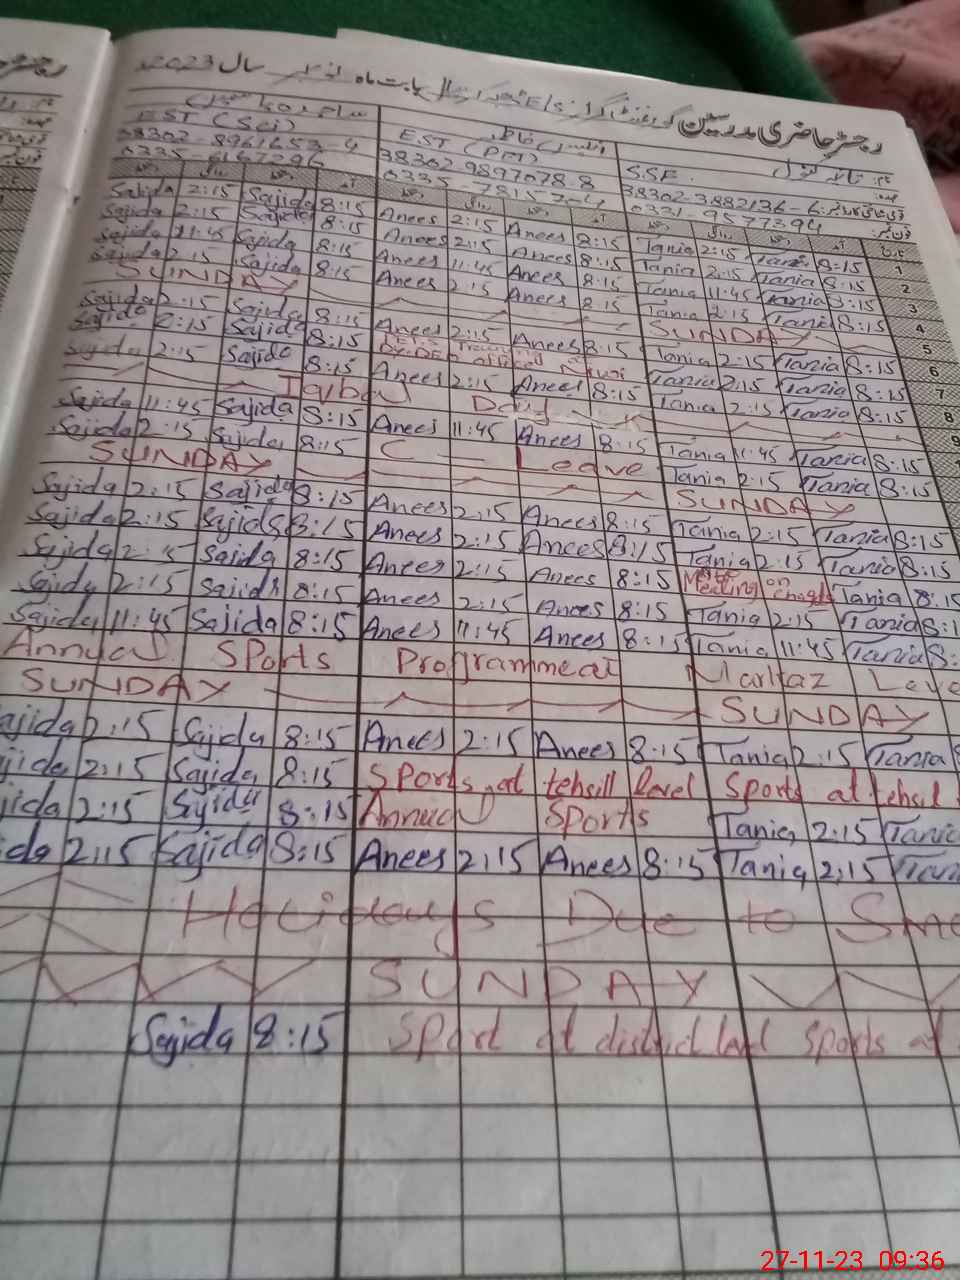 رجسٹر حاضری مدرسین گورنمنٹ گرلز E/S بابت ماہ نومبر سال 2023
EST (Sci) EST (PET) S.S.E
38302-8961653-4 38302-9897078-8 38302-3882136-6
0335-6167296 0335-7815 0331-9577394
Sajida 2:15 Sajida 8:15 Anees 2:15 Anees 8:15 Tania 2:15 Tania 8:15 1
Sajida 2:15 Sajida 8:15 Anees 2:15 Anees 8:15 Tania 2:15 Tania 8:15 2
Sajida 11:45 Sajida 8:15 Anees 11:45 Anees 8:15 Tania 11:45 Tania 8:15 3
Sajida 2:15 Sajida 8:15 Anees 2:15 Anees 8:15 Tania 2:15 Tania 8:15 4
SUNDAY SUNDAY 5
Sajida 2:15 Sajida 8:15 Anees 2:15 Anees 8:15 Tania 2:15 Tania 8:15 6
Sajida 2:15 Sajida 8:15 Tania 2:15 Tania 8:15 7
Sajida 2:15 Sajida 8:15 Anees 2:15 Anees 8:15 Tania 2:15 Tania 8:15 8
Iqbal Day 9
Sajida 11:45 Sajida 8:15 Anees 11:45 Anees 8:15 Tania 11:45 Tania 8:15
Sajida 2:15 Sajida 8:15 C Leave Tania 2:15 Tania 8:15
SUNDAY SUNDAY
Sajida 2:15 Sajida 8:15 Anees 2:15 Anees 8:15 Tania 2:15 Tania 8:15
Sajida 2:15 Sajida 8:15 Anees 2:15 Anees 8:15 Tania 2:15 Tania 8:15
Sajida 2:15 Sajida 8:15 Anees 2:15 Anees 8:15 Meeting on Tania 8:15
Sajida 2:15 Sajida 8:15 Anees 2:15 Anees 8:15 Tania 2:15 Tania 8:1
Sajida 11:45 Sajida 8:15 Anees 11:45 Anees 8:15 Tania 11:45 Tania 8:
Annual Sports Programme at Markaz Leve
SUNDAY SUNDAY
ajida 2:15 Sajida 8:15 Anees 2:15 Anees 8:15 Tania 2:15 Tania 8
jida 2:15 Sajida 8:15 Sports at tehsill level Sports at tehsil
jida 2:15 Sajida 8:15 Annual Sports Tania 2:15 Tania
ida 2:15 Sajida 8:15 Anees 2:15 Anees 8:15 Tania 2:15 Tani
Holidays Due to Smo
SUNDAY
Sajida 8:15 Sport at district level Sports at
27-11-23 09:36